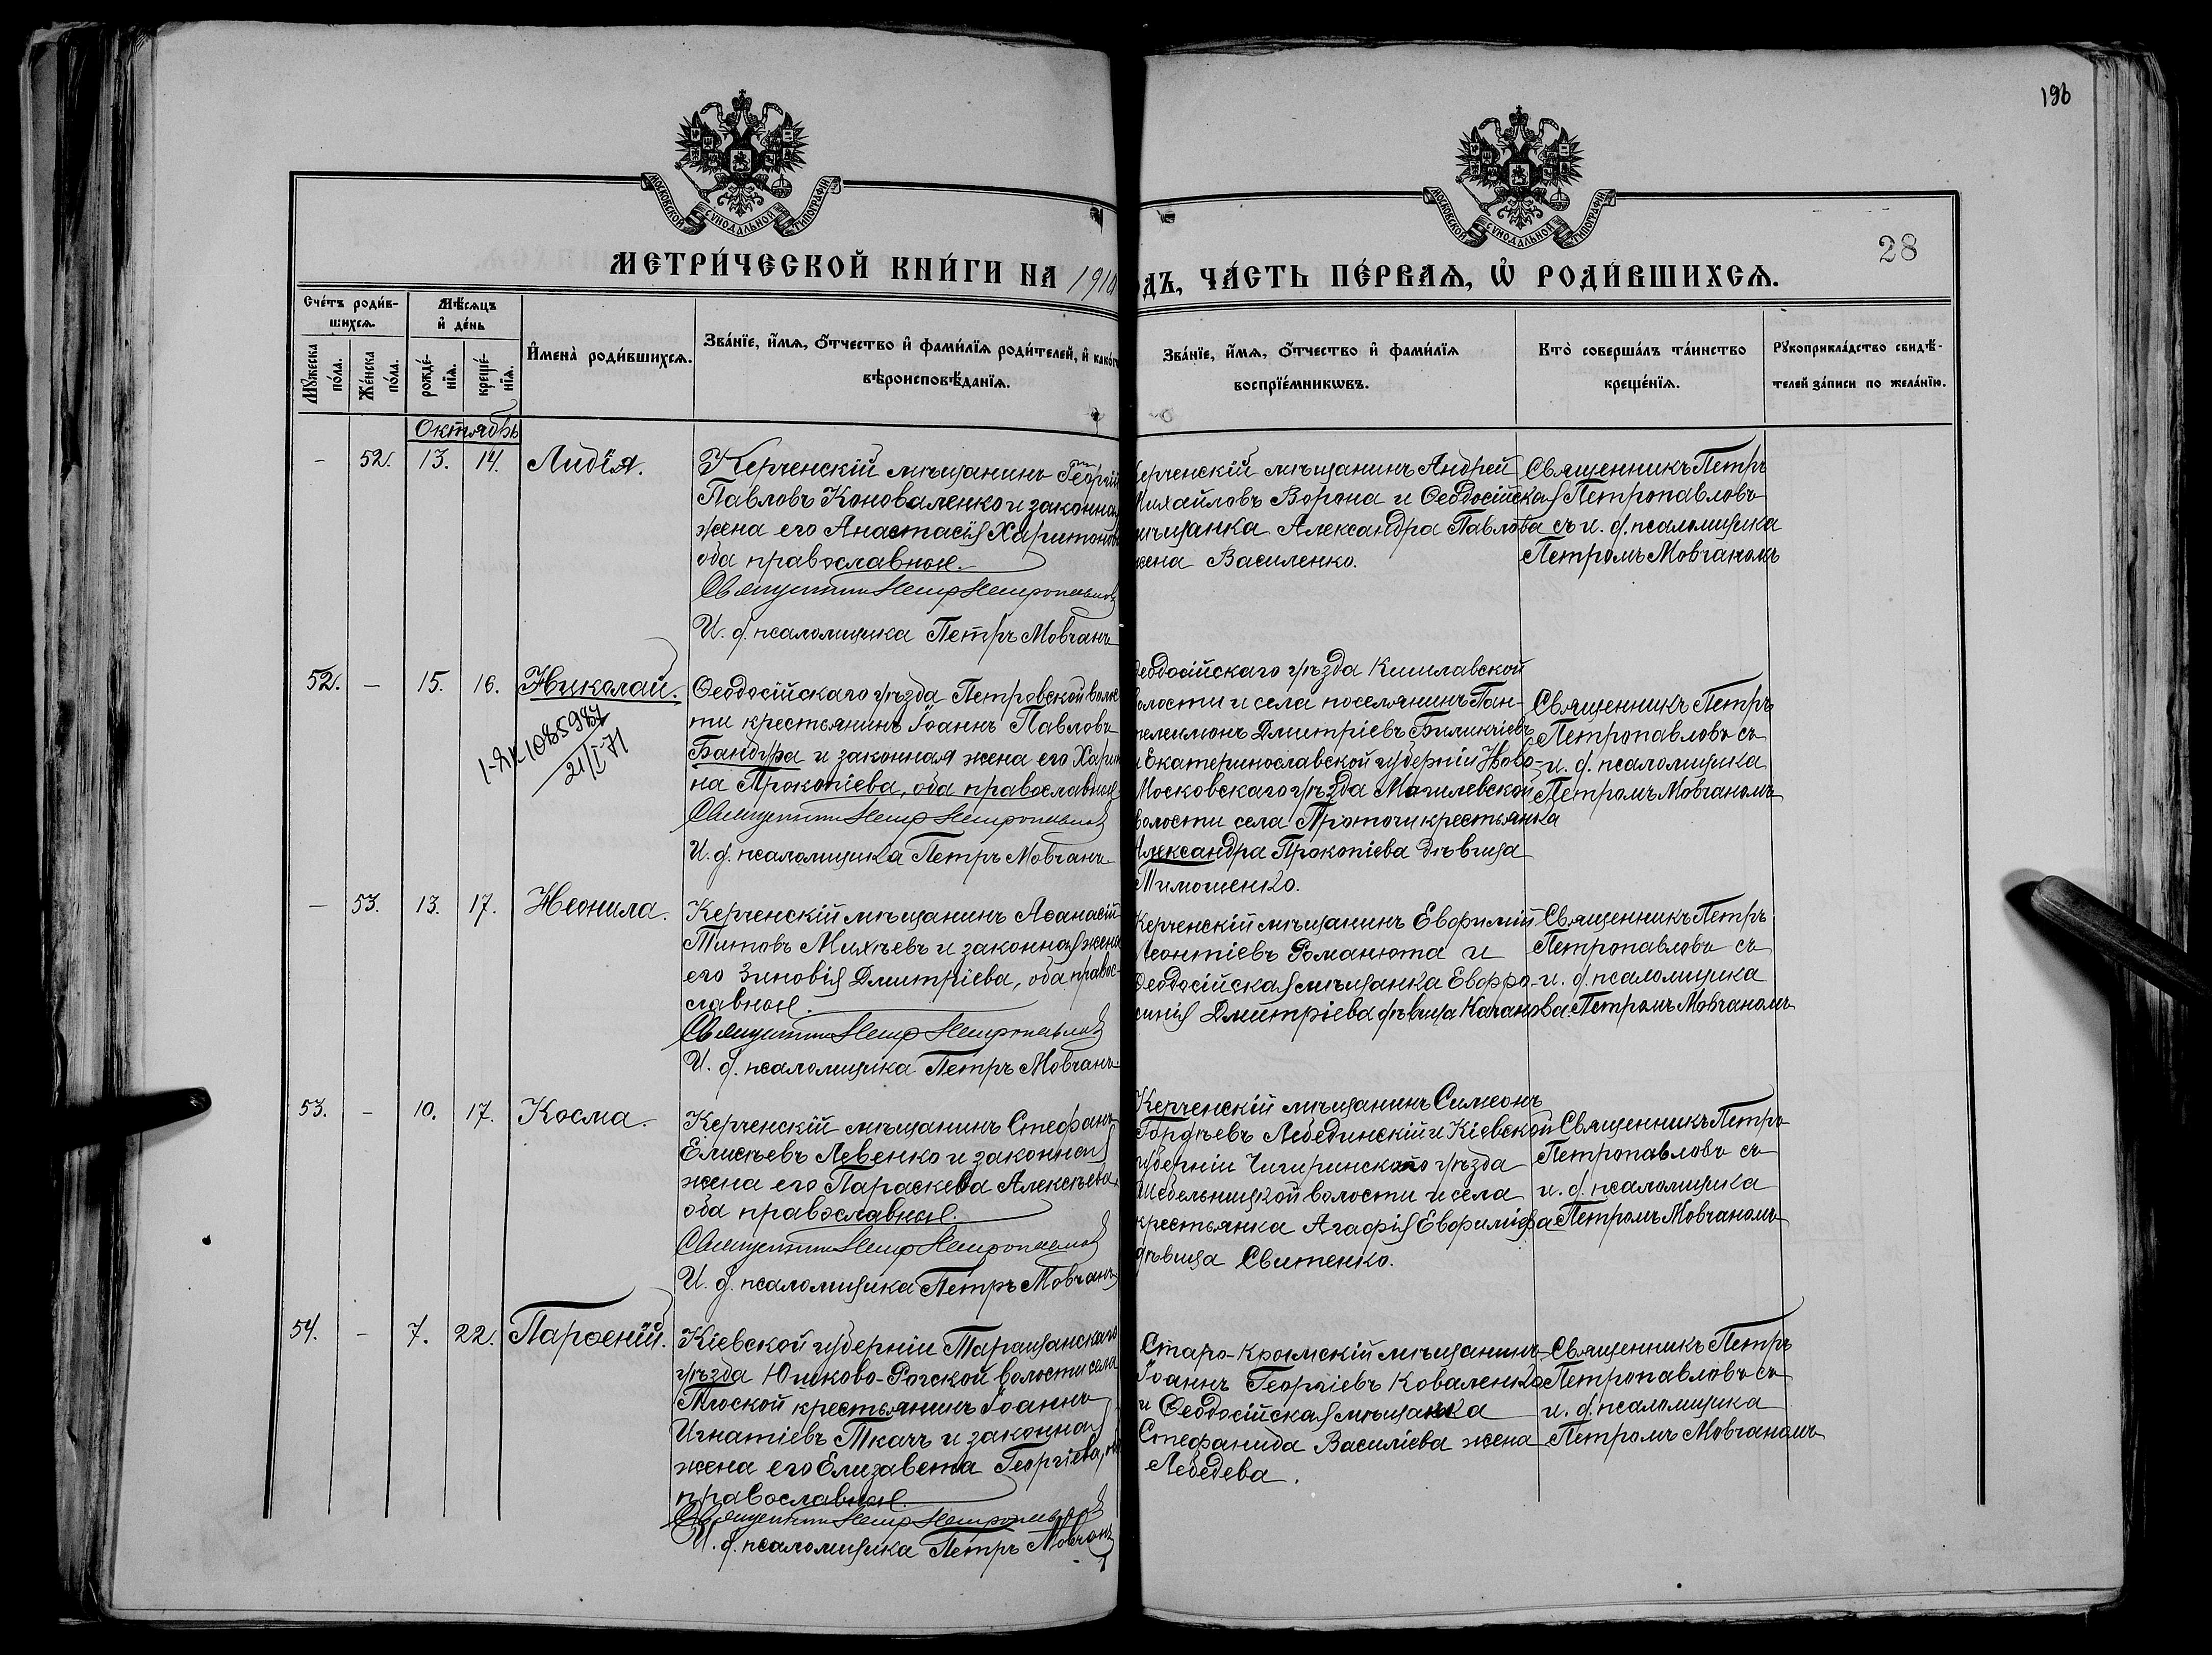 193
28
МОСКОВСКОЙ СѴНОДАЛЬНОЙ ТИПОГРАФІИ
МОСКОВСКОЙ СѴНОДАЛЬНОЙ ТИПОГРАФІИ
МЕТРИ́ЧЕСКОЙ КНИ́ГИ НА 1910
ДЪ, ЧА́СТЬ ПЕ́РВАЯ, Ѡ҆ РОДИ́ВШИХСЯ.
Сче́тъ роди́в-
шихся.
Мѣ́сяцъ
и҆ де́нь
Мꙋ́жеска
по́ла.
Же́нска
по́ла.
рожде́-
нїя.
креще́-
нїя.
И҆мена̀ роди́вшихся.
Зва́нїе, и҆́мя, ѻ҆́тчество и҆ фами́лїя роди́телей, и҆ како́г
вѣроисповѣ́данїя.
Зва́нїе, и҆́мя, ѻ҆́тчество и҆ фами́лїя
воспрїе́мникѡвъ.
Кто̀ соверша́лъ та́инство
креще́нїя.
Рꙋкоприкла́дство свидѣ́-
телей за́писи по жела́нїю.
Октябрь
- 52. 13. 14. Лидія.
Керченскій мѣщанинъ Георгій
Павловъ Коноваленко и законная
жена его Анастасія Харитонов
оба православные.
Священникъ Петръ Петропавлов
И. д. псаломщика Петръ Мовчанъ
ерченскій мѣщанинъ Андрей
Михайловъ Ворона и Ѳеодосійская
мѣщанка Александра Павлова
жена Василенко.
Священникъ Петръ
Петропавловъ
съ и. д. псаломщика
Петромъ Мовчаномъ
52. - 15. 16. Николай.
1-АК 1085984
21/I-71
Ѳеодосійскаго уѣзда Петровской волос
ти крестьянинъ Іоаннъ Павловъ
Бандура и законная жена его Хари
на Прокопіева, оба православные
Священникъ Петръ Петропавлов
И. д. псаломщика Петръ Мовчанъ
Ѳеодосійскаго уѣзда Кишлавской
волости и села поселянинъ Пан-
телеимонъ Дмитріевъ Биликчіевъ
и Екатеринославской губерніи Ново-
Московскаго уѣзда Могилевской
волости села Проточи крестьянка
Александра Прокопіева дѣвица
Тимошенко.
Священникъ Петръ
Петропавловъ съ
и. д. псаломщика
Петромъ Мовчаномъ
- 53. 13. 17. Неонила.
Керченскій мѣщанинъ Аѳанасій
Титовъ Михѣевъ и законная жена
его Зиновія Дмитріева, оба правос-
славные.
Священникъ Петръ Петропавлов
И. д. псаломщика Петръ Мовчанъ
Керченскій мѣщанинъ Евфимій
Леонтіевъ Романюта и
Ѳеодосійская мѣщанка Евфро-
синія Дмитріева дѣвица Качанова.
Священникъ Петръ
Петропавловъ съ
и. д. псаломщика
Петромъ Мовчаномъ
53. - 10. 17. Косма.
Керченскій мѣщанинъ Стефанъ
Елисѣевъ Левенко и законная
жена его Параскева Алексѣева,
оба православные.
Священникъ Петръ Петропавлов
И. д. псаломщика Петръ Мовчанъ
Керченскій мѣщанинъ Симеонъ
Гордѣевъ Лебединскій и Кіевской
губерніи Чигиринскаго уѣзда
Шабельницкой волости и села
крестьянка Агафія Евфиміева
дѣвица Свитенко.
Священникъ Петръ
Петропавловъ съ
и. д. псаломщика
Петромъ Мовчаномъ
54. - 7. 22. Парѳеній.
Кіевской губерніи Таращанскаго
уѣзда Юшково-Рогской волости села
Плоской крестьянинъ Іоаннъ
Игнатіевъ Ткачъ и законная
жена его Елизавета Георгіева, оба
православные.
Священникъ Петръ Петропавлов
И. д. псаломщика Петръ Мовчанъ
Старо-Крымскій мѣщанинъ
Іоаннъ Георгіевъ Коваленко
и Ѳеодосійская мѣщанка
Стефанида Василіева жена
Лебедева.
Священникъ Петръ
Петропавловъ съ
и. д. псаломщика
Петромъ Мовчаномъ